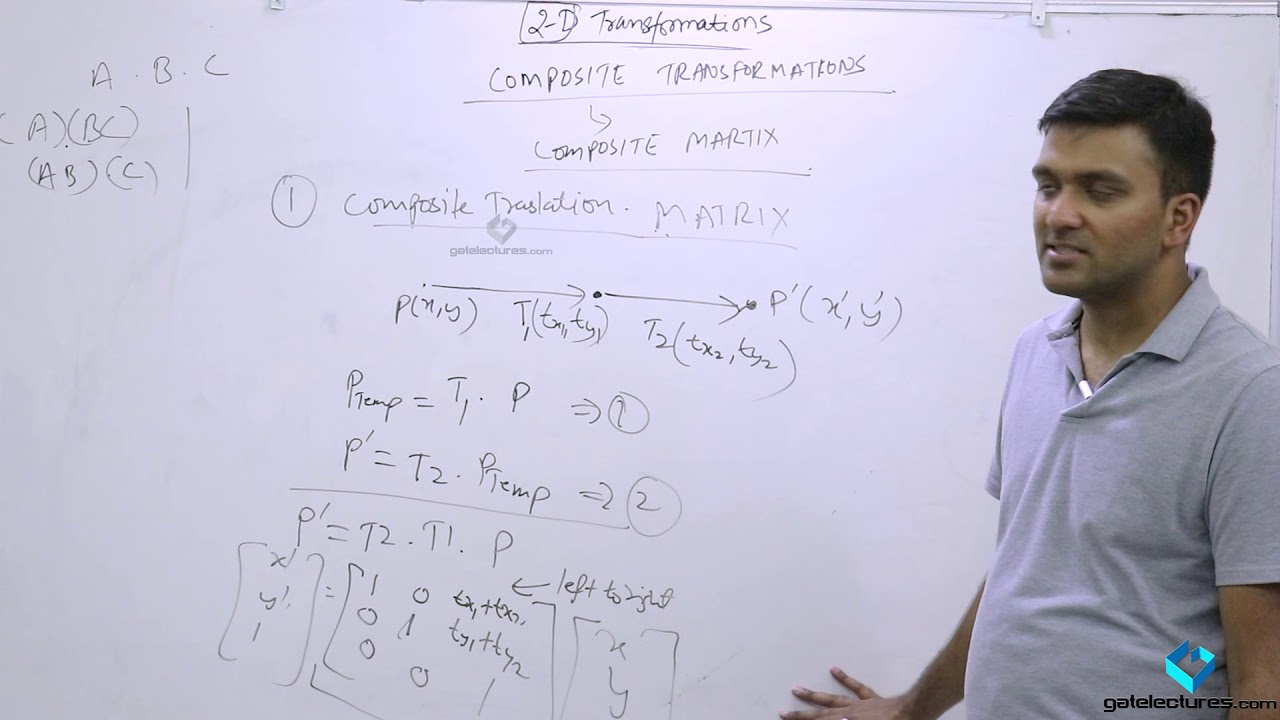 2-D Transformations
COMPOSITE TRANSFORMATIONS
COMPOSITE MARTIX
A . B . C
(A)(BC)
(AB)(C)
① Composite Traslation. MATRIX
gatelectures.com
P(x,y) T₁(tx₁,ty₁) T₂(tx₂,ty₂) P'(x',y')
P_Temp = T₁ . P ⇒ ①
P' = T2 . P_Temp ⇒ ②
P' = T2 . T1 . P
← left to right
[x' = [1 0 tx₁+tx₂ [x
y' 0 1 ty₁+ty₂ y
1] 0 0 1
gatelectures.com